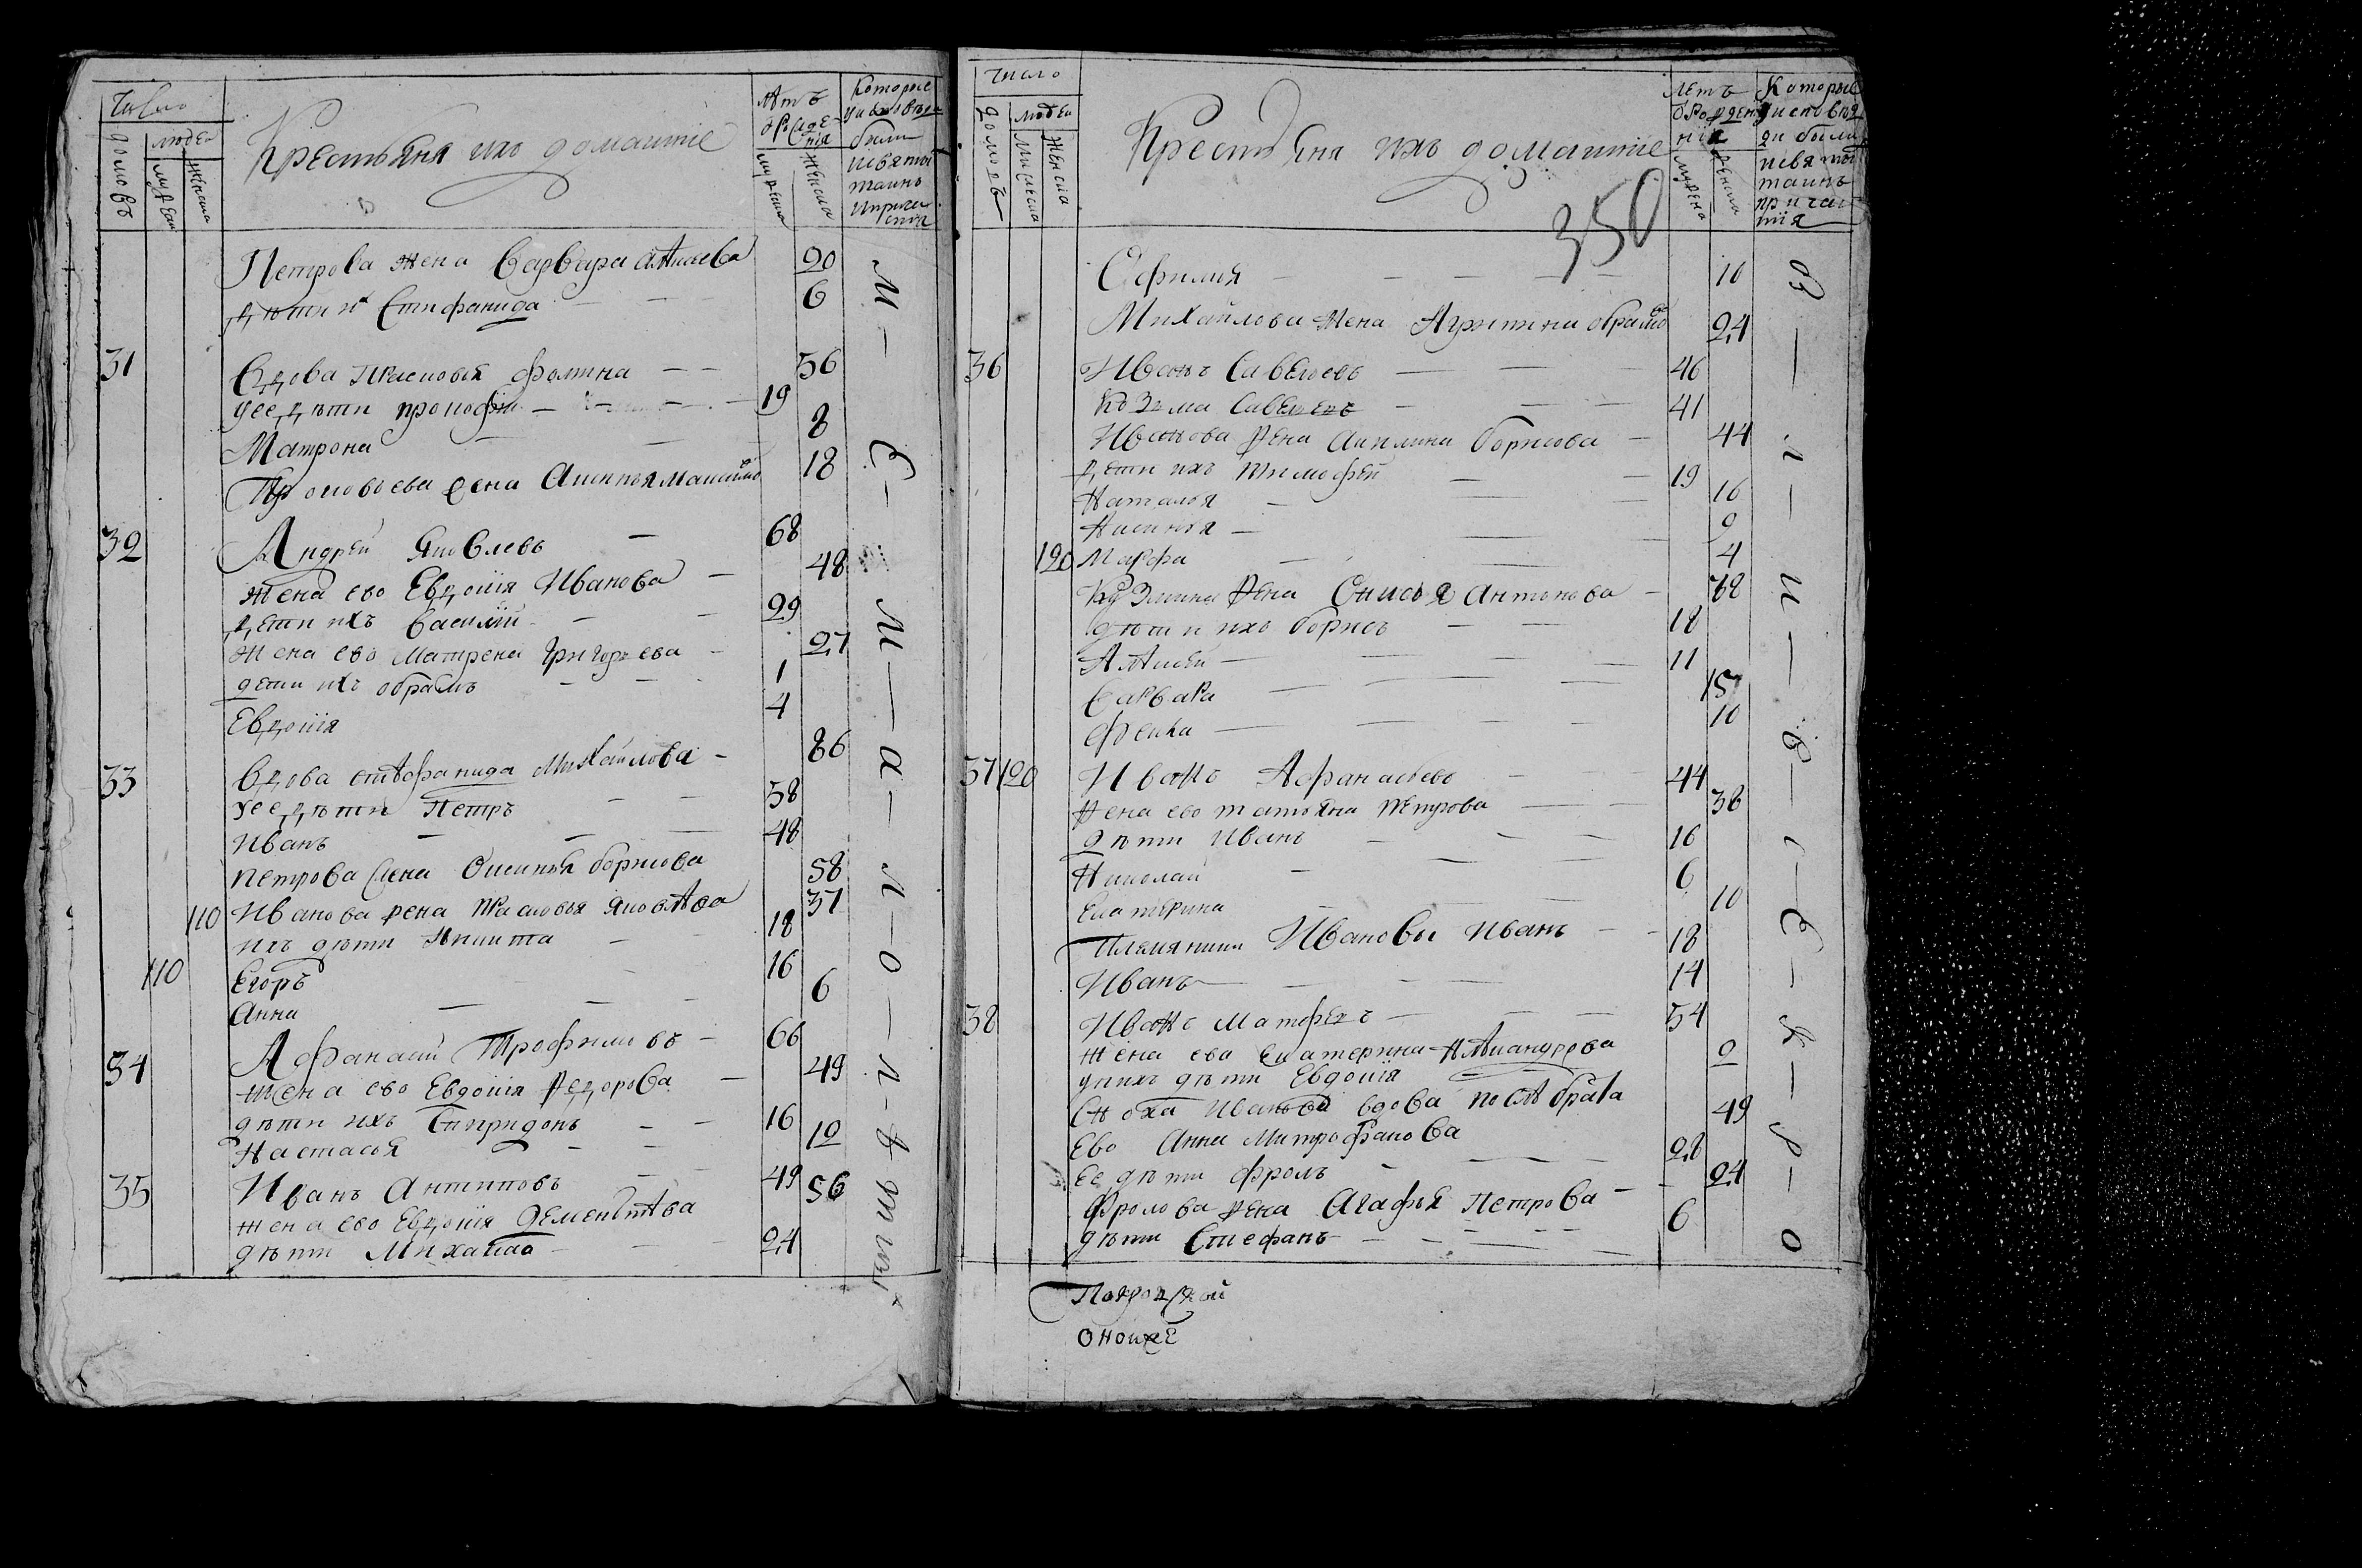 Число
домовъ
людей
мужеска
женска
Крестьяня ихъ домашніе
лѣтъ
от рожде
нія
мужеска
женска
Которые
у исповѣди
были
и святыхъ
таинъ
и прича
стія
Петрова жена Варвара Алѣксѣева 20
дѣти их Стифанида 6
31 Вдова Прасковья Фомина 56
у ее дѣти Прокофи 19
Матрона 8
Прокофьева жена Аксинья 18
32 Андрей Яковлевъ 68
жена ево Евдокія Иванова 48
дети ихъ Василій 29
жена ево Матрена Григорьева 27
дети ихъ Обрамъ 1
Евдокія 4
33 Вдова Стѣфанида Михайлова 86
у ее дѣти Петръ 58
Иванъ 48
Петрова жена Оксинья Борисова 58
110 Иванова жена Прасковья Яковлѣва 37
ихъ дѣти Никита 18
110 Егоръ 16
Анна 6
34 Афанасий Трофимовъ 66
жена ево Евдокія Федорова 49
дѣти ихъ Спиридонъ 16
Настасья 12
35 Иванъ Антиповъ 49
жена ево Евдокія Дементѣва 56
дѣти Михайла 24
М – З – М – а – л – о – л – ѣ т ны
Число
домовъ
людей
мужеска
женска
Крестьяня ихъ домашніе
350
летъ
от рожден
нія
мужеска
женска
Которые
у исповѣ
ди были
и святых
таинъ
причас
тія
Софилия 10
Михайлова жена Агрипина Обрамо 24
36 Иванъ Савельевъ 46
Козма Савельевъ 41
Иванова жена Акилина Борисова 44
дети ихъ Тимофей 19
Наталья 16
Аксинья 9
120 Марфа 4
Кузмина жена Онисья Антонова 38
дѣти ихъ Борисъ 18
Алѣксей 11
Варвара 15
Фекла 10
37 120 Иванъ Афанасьевъ 44
жена ево Татьяна Петрова 38
дѣти Иванъ 16
Николай 6
Екатерина 10
Племяники Ивановы Иванъ 18
Иванъ 14
38 Иванъ Матфеевъ 54
жена ева Екатерина Алѣксандрова
у нихъ дѣти Евдокія 9
Сноха Иванова вдова послѣ брата
Ево Анна Митрофанова 49
Ее дѣти Фролъ 28
Фролова жена Агафья Петрова 24
дѣти Стефанъ 6